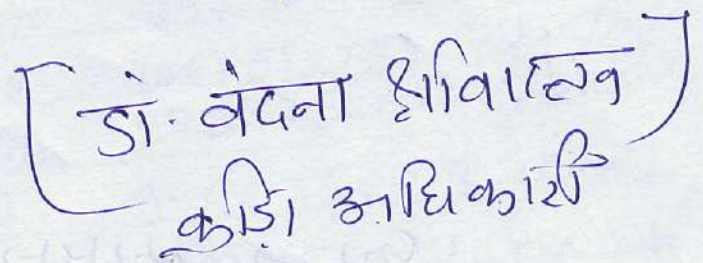 [डॉ. वंदना श्रीवास्तव]
अधिकारी